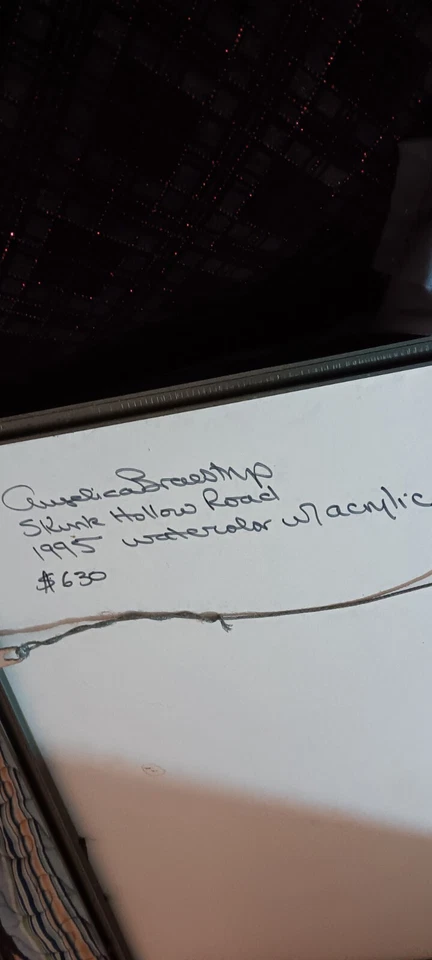 Angelica Braestrup
Skunk Hollow Road
1995 watercolor w/ acrylic
$630